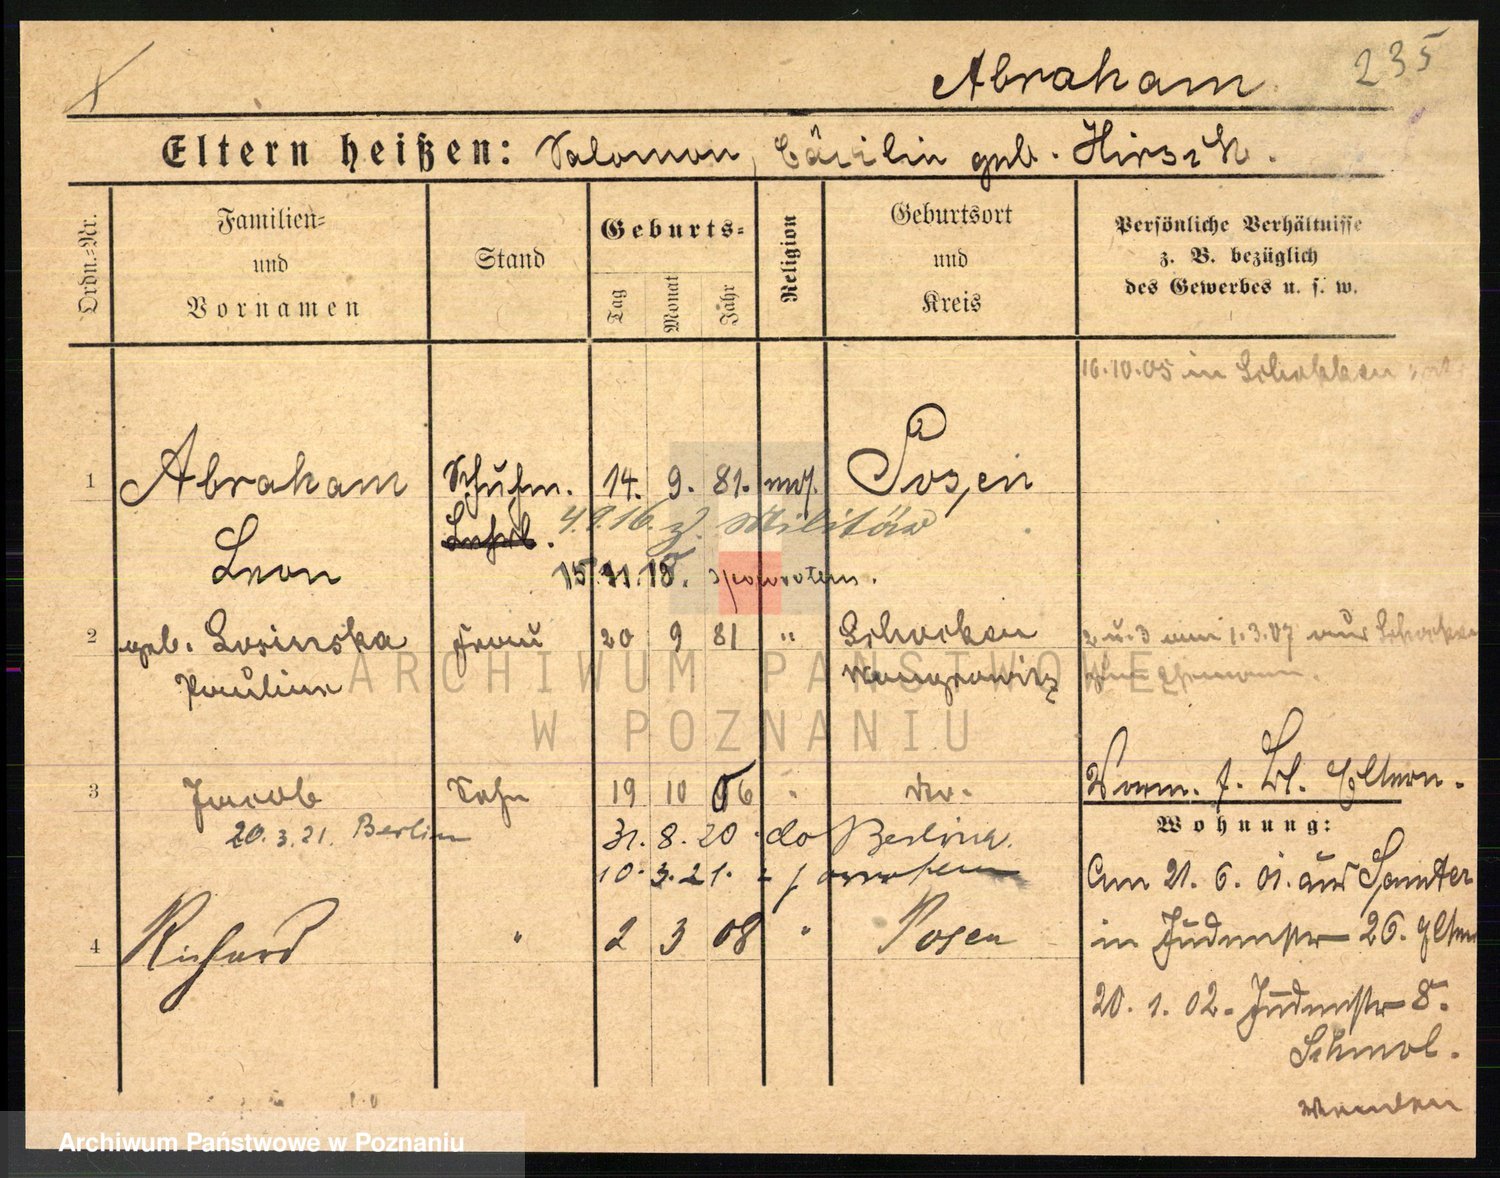 235
Abraham
Eltern heißen: Salomon, Cäcilie geb. Hirsch.
Ordn.=Nr.
Familien=
und
Vornamen
Stand
Geburts=
Tag
Monat
Jahr
Religion
Geburtsort
und
Kreis
Persönliche Verhältnisse
z. B. bezüglich
des Gewerbes u. s. w.
16.10.05 in Schokken
1 Abraham Schuhm. 14. 9. 81. mos. Posen
Leon
4.9.16. z. Militär
15.11.18.
2 geb. Losinska Frau 20 9 81 " Schocken
Pauline Wongrowitz
2 u. 3 am 1.3.07 aus Schocken
zum Ehemann.
3 Jacob Sohn 19 10 06 "
20.3.21. Berlin
31. 8. 20 do Berlin
10. 3. 21.
4 Richard " 2 3 08 " Posen
Vorm. s. Bl. Eltern.
Wohnung:
Am 21. 6. 01. aus Samter
in Judenstr 26. Eltern
20. 1. 02. Judenstr 8.
Schmol.
wenden
ARCHIWUM PAŃSTWOWE
W POZNANIU
Archiwum Państwowe w Poznaniu